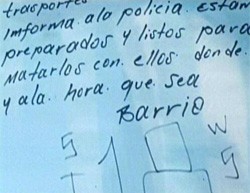 trasporte
imforma. ala policia. estan
preparados y listos para
matarlos con. ellos donde.
y ala. hora. que. sea
Barrio
S W
T S